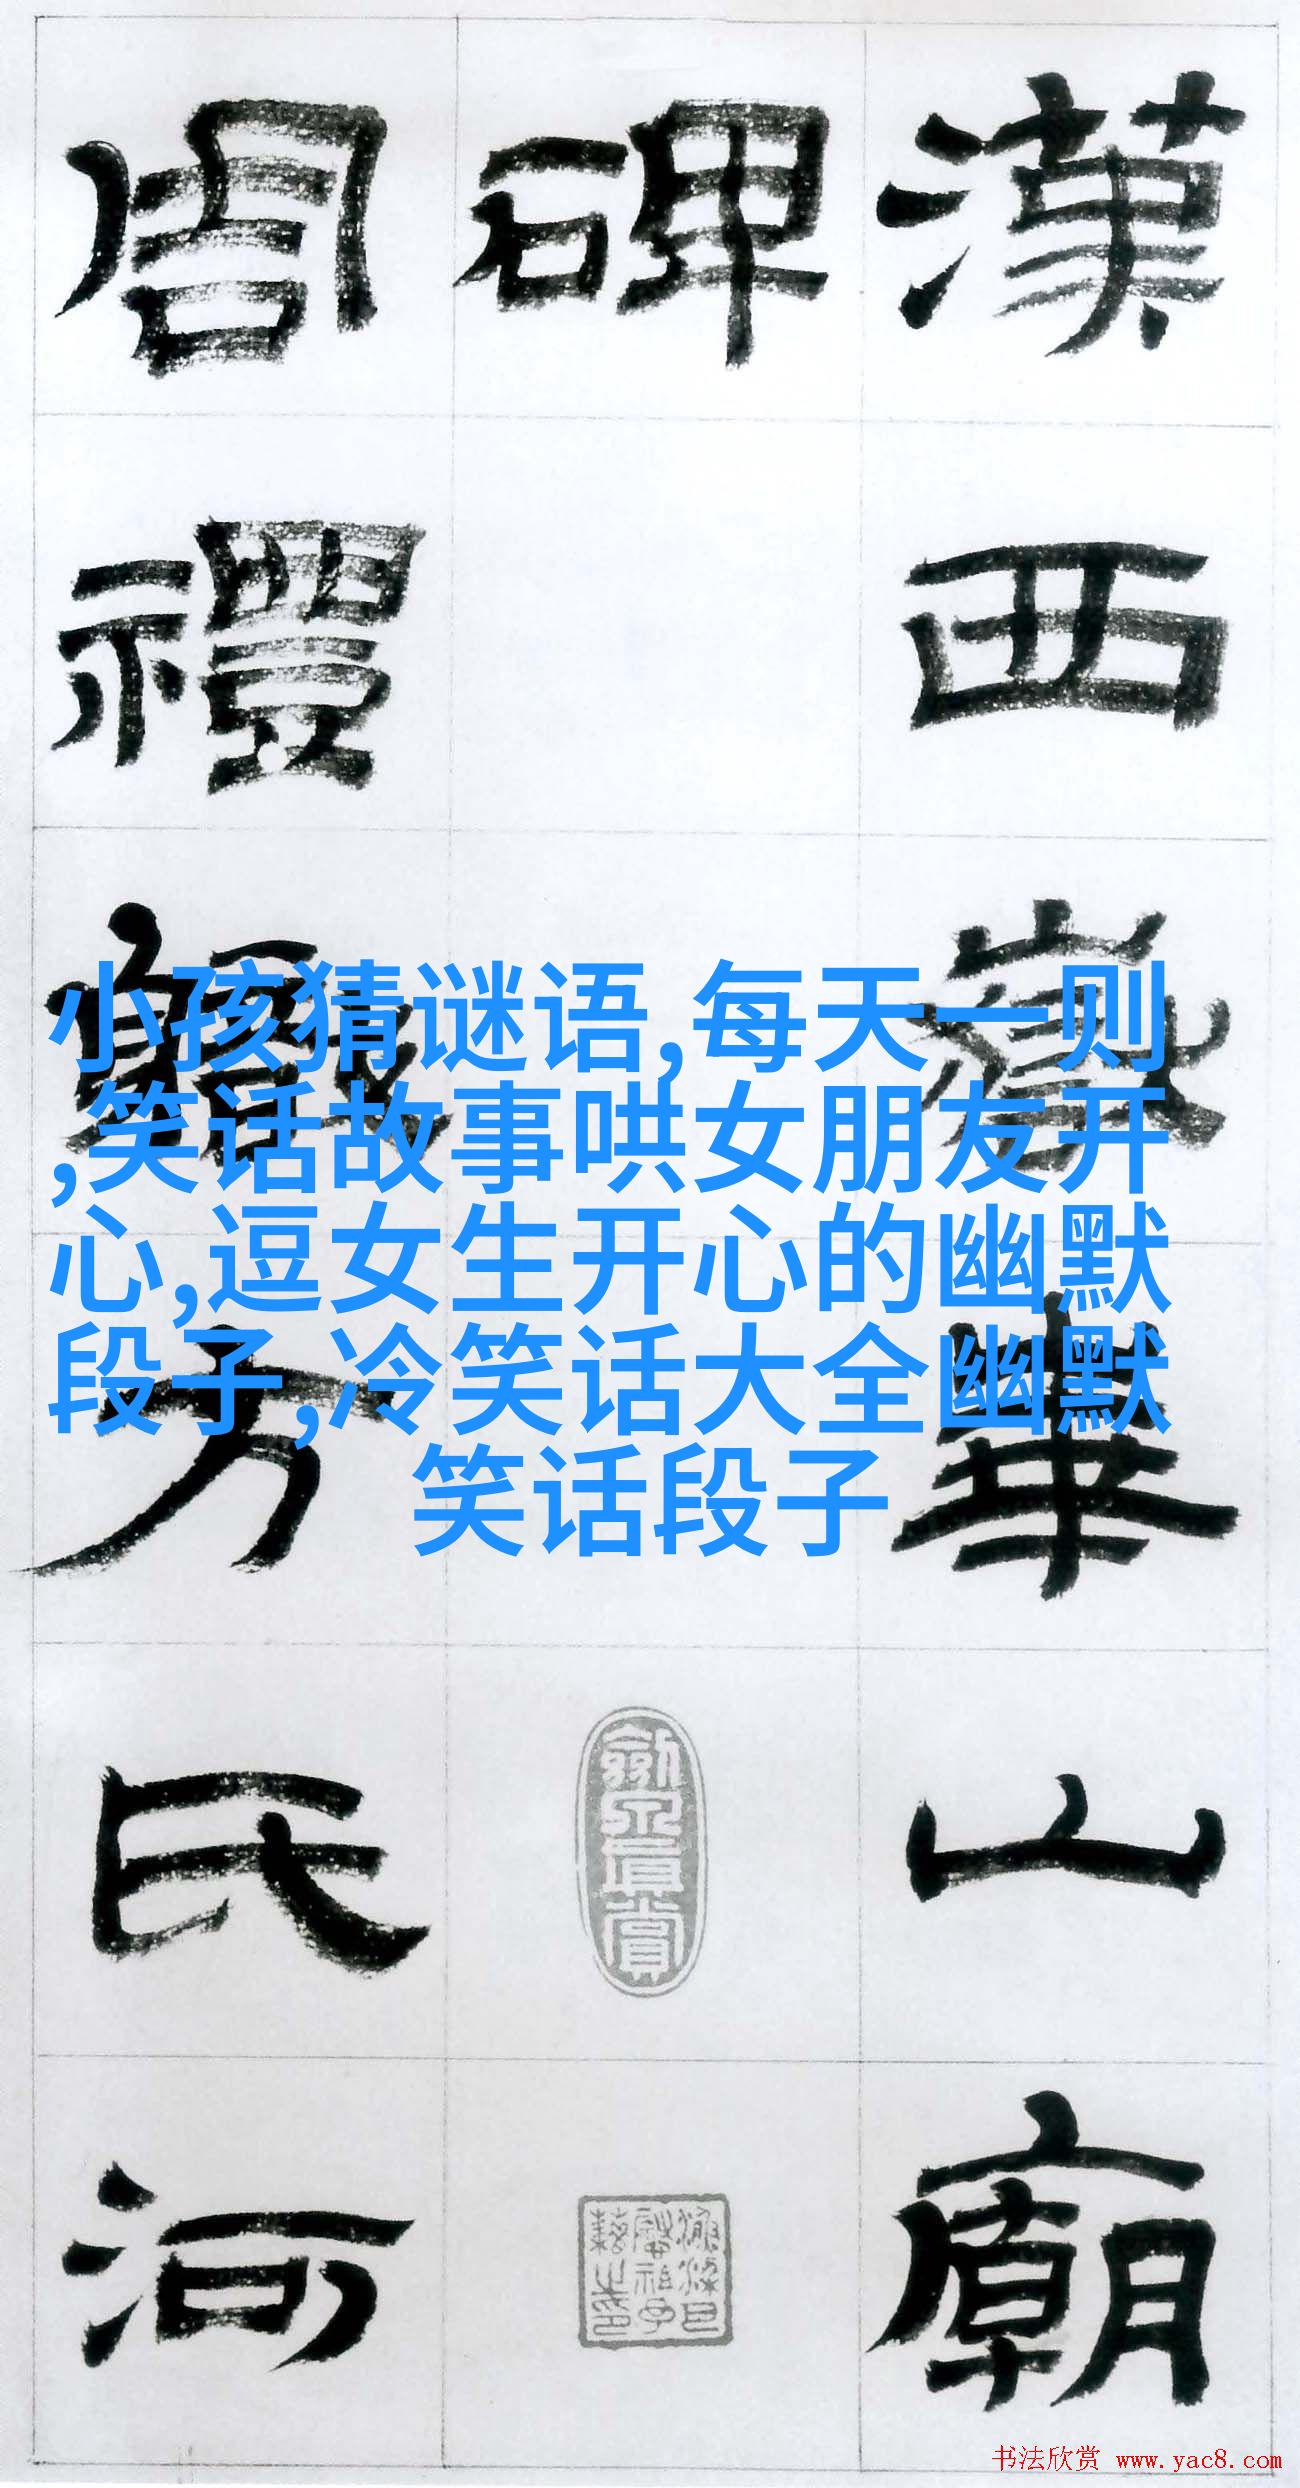 漢西嶽華山廟
碑
周禮職方氏河
小孩猜谜语,每天一则
,笑话故事哄女朋友开
心,逗女生开心的幽默
段子,冷笑话大全幽默
笑话段子
书法欣赏 www.yac8.com